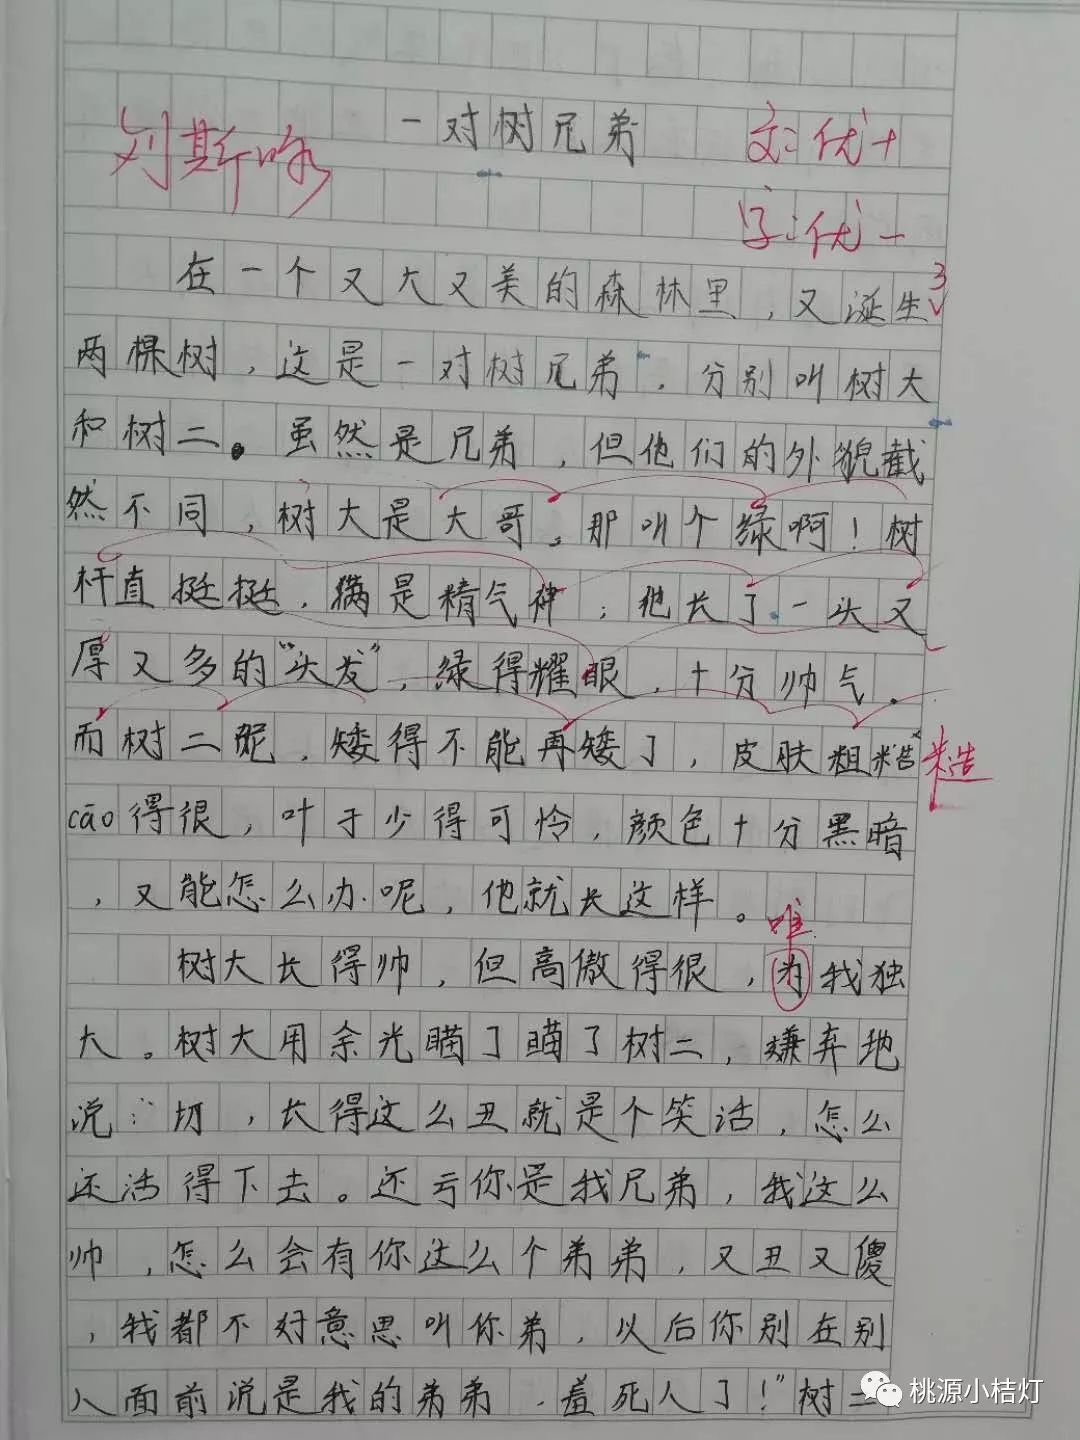 一对树兄弟
刘斯咏
文:优+
字:优-
在一个又大又美的森林里,又诞生了
两棵树,这是一对树兄弟,分别叫树大
和树二。虽然是兄弟,但他们的外貌截
然不同,树大是大哥。那叫个绿啊!树
杆直挺挺,满是精气神;他长了一头又
厚又多的“头发”,绿得耀眼,十分帅气。
而树二呢,矮得不能再矮了,皮肤粗糙
糙
cāo得很,叶子少得可怜,颜色十分黑暗
,又能怎么办呢,他就长这样。
唯
树大长得帅,但高傲得很,为我独
大。树大用余光瞄了瞄了树二,嫌弃地
说:“切,长得这么丑就是个笑话,怎么
还活得下去。还亏你是我兄弟,我这么
帅,怎么会有你这么个弟弟,又丑又傻
,我都不好意思叫你弟,以后你别在别
人面前说是我的弟弟,羞死人了!”树二
桃源小桔灯